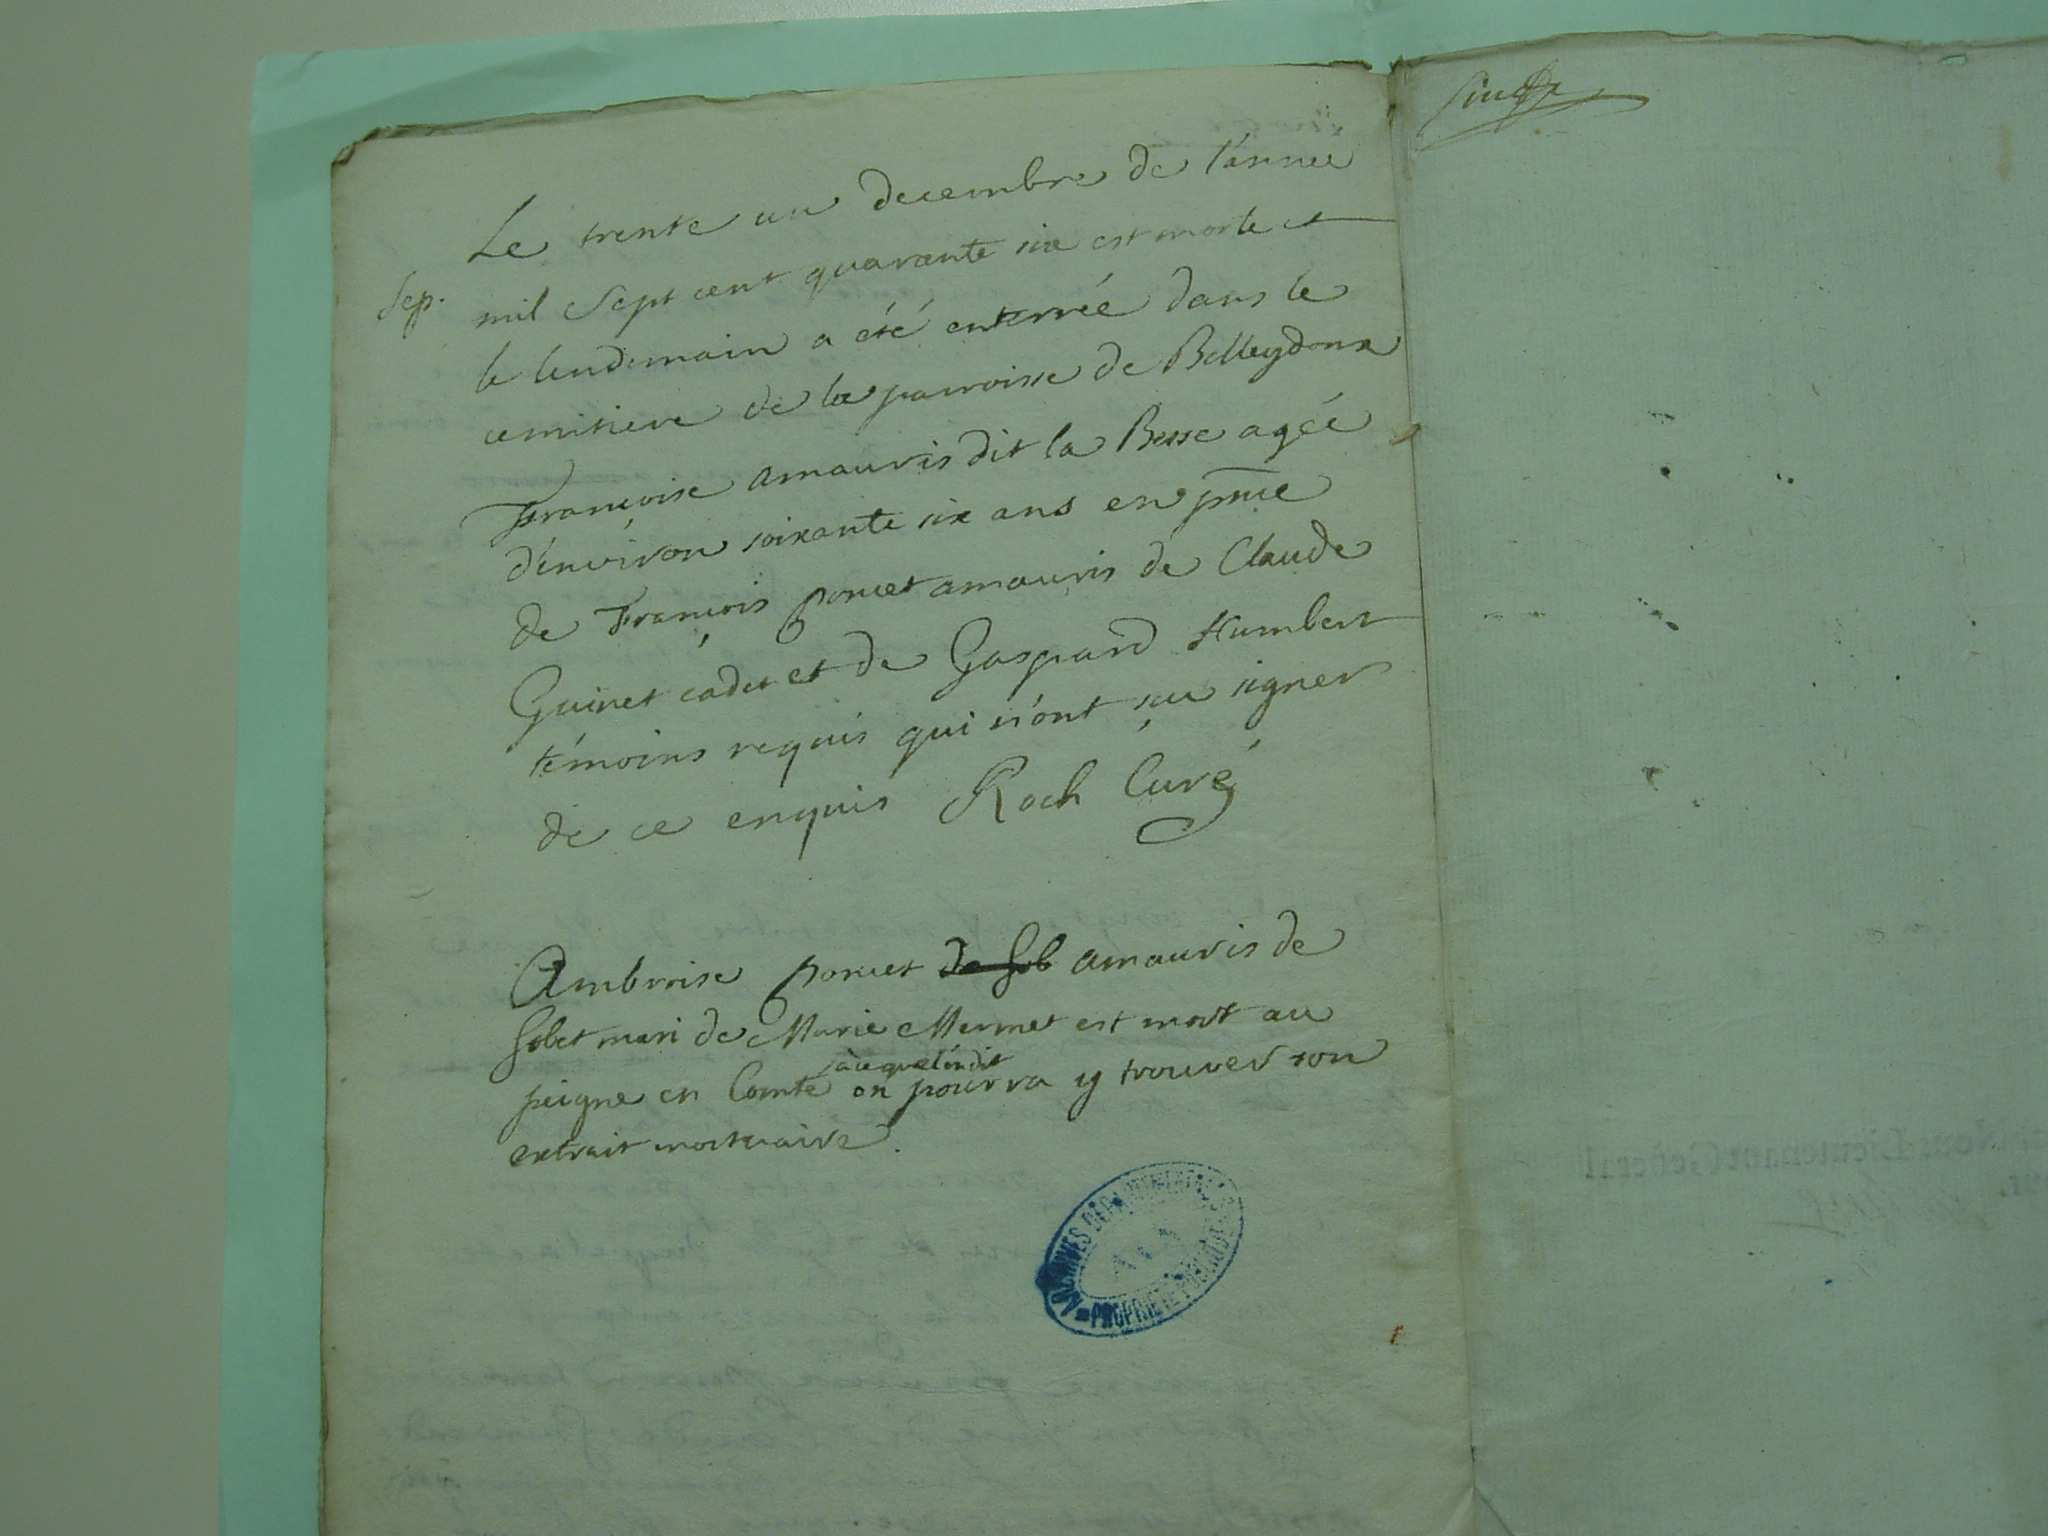 Le trente un decembre de l'année
Sep. mil sept cent quarante six est morte et
le lendemain a été enterrée dans le
cemitiere de la parroisse de Belleydoux
Françoise amauris dit la Besse agée
d'environ soixante six ans en pnce
de François poncet amauris de Claude
Guinet cadet et de Gaspard Humbert
témoins requis qui n'ont sçu signer
de ce enquis Roch Curé
Ambroise poncet de Gob amauris de
Gobet mari de Marie Mermet est mort au
peigne en Comté à ce que l'on dit on pourra y trouver son
extrait mortuaire.
ARCHIVES DÉPARTEMENTALES
AIN
PROPRIÉTÉ PUBLIQUE
Lieutenant General